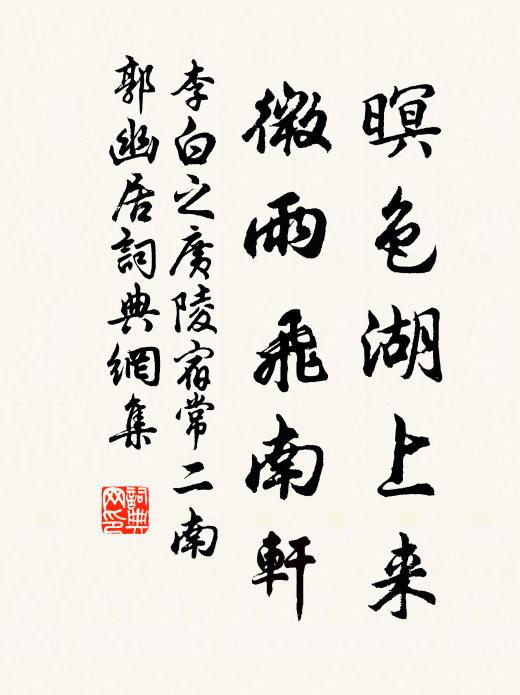 暝色湖上来
微雨飛南軒
李白之廣陵宿常二南
郭幽居詞典網集
詞典網印